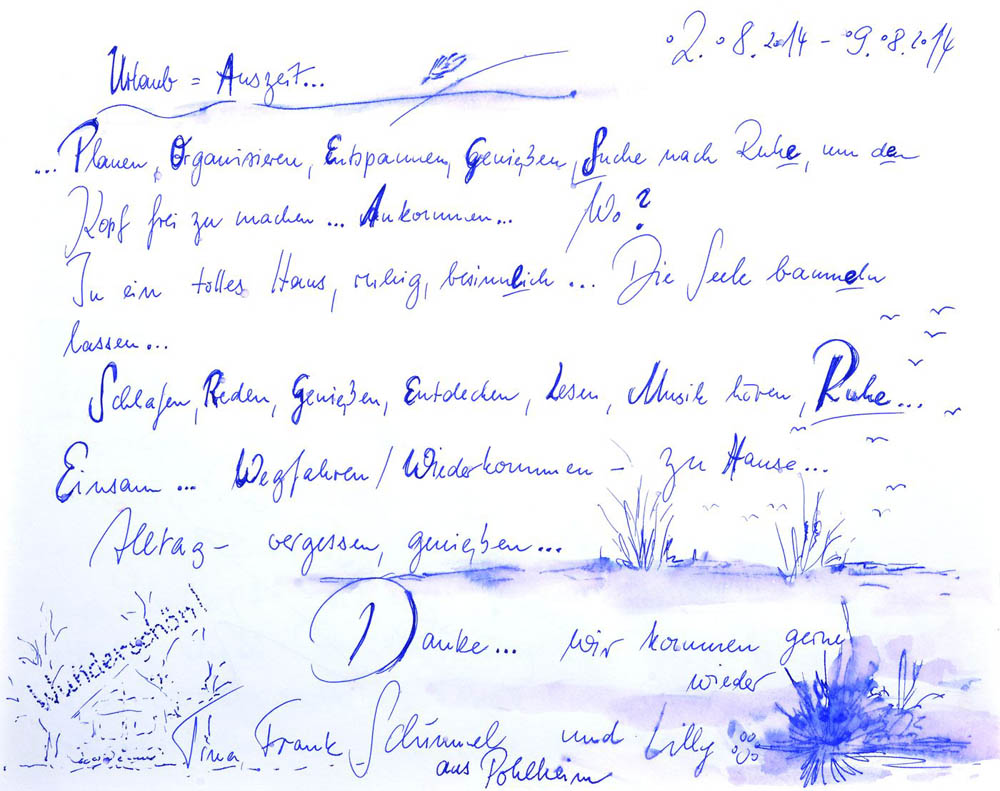 02.08.2014 - 09.08.2014
Urlaub = Auszeit...
... Planen, Organisieren, Entspannen, Genießen, Suche nach Ruhe, um den
Kopf frei zu machen ... Ankommen... Wo?
In ein tolles Haus, ruhig, besinnlich ... Die Seele baumeln
lassen...
Schlafen, Reden, Genießen, Entdecken, Lesen, Musik hören, Ruhe...
Einsam ... Wegfahren / Wiederkommen - zu Hause...
Alltag - vergessen, genießen...
Wunderschön!
Danke... wir kommen gerne
wieder
Tina, Frank Schimmel und Lilly
aus Pohlheim